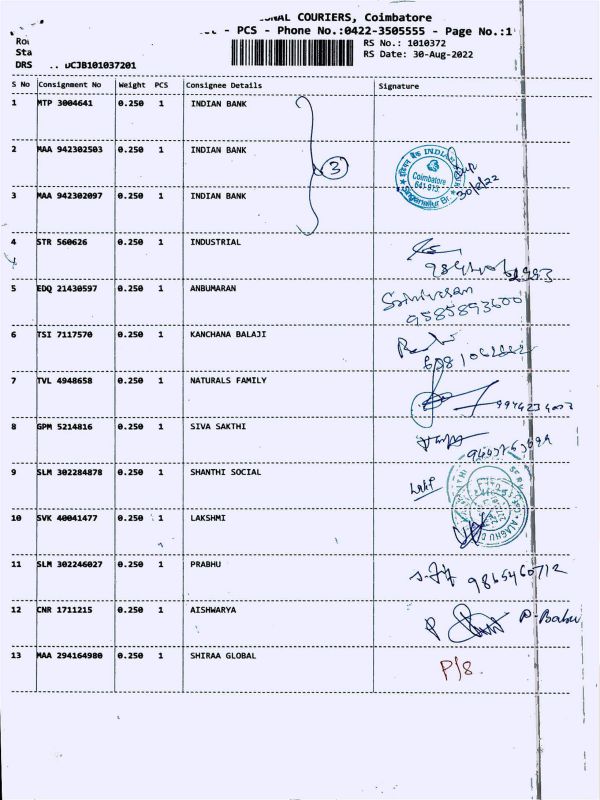 COURIERS, Coimbatore
- PCS - Phone No.:0422-3505555 - Page No.:1
RS No.: 1010372
Sta RS Date: 30-Aug-2022
DRS DCJB101037201
S No Consignment No Weight PCS Consignee Details Signature
1 MTP 3004641 0.250 1 INDIAN BANK
2 MAA 942302503 0.250 1 INDIAN BANK
3
Coimbatore
30/8/22
3 MAA 942302097 0.250 1 INDIAN BANK
4 STR 560626 0.250 1 INDUSTRIAL
5 EDQ 21430597 0.250 1 ANBUMARAN
Srinivasan
9585893600
6 TSI 7117570 0.250 1 KANCHANA BALAJI
7 TVL 4948658 0.250 1 NATURALS FAMILY
8 GPM 5214816 0.250 1 SIVA SAKTHI
9 SLM 302284878 0.250 1 SHANTHI SOCIAL
10 SVK 40041477 0.250 1 LAKSHMI
11 SLM 302246027 0.250 1 PRABHU
9865460712
12 CNR 1711215 0.250 1 AISHWARYA
P. Babu
13 MAA 294164980 0.250 1 SHIRAA GLOBAL
P/8.